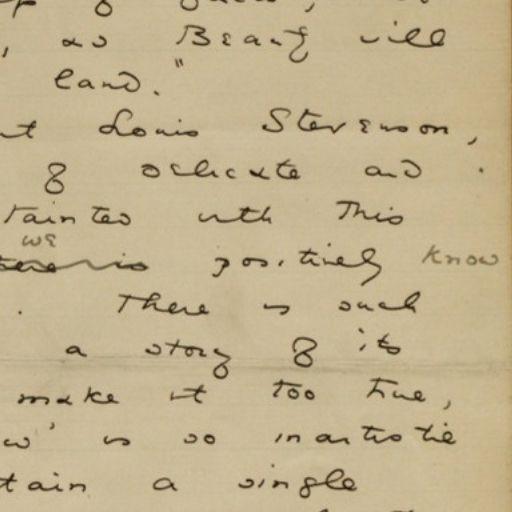 , as Beauty will
land."
Louis Stevenson,
of delicate and
tainted with this
we
there is positively know
. There is such
a story of its
make it too true,
is so inartistic
tain a single